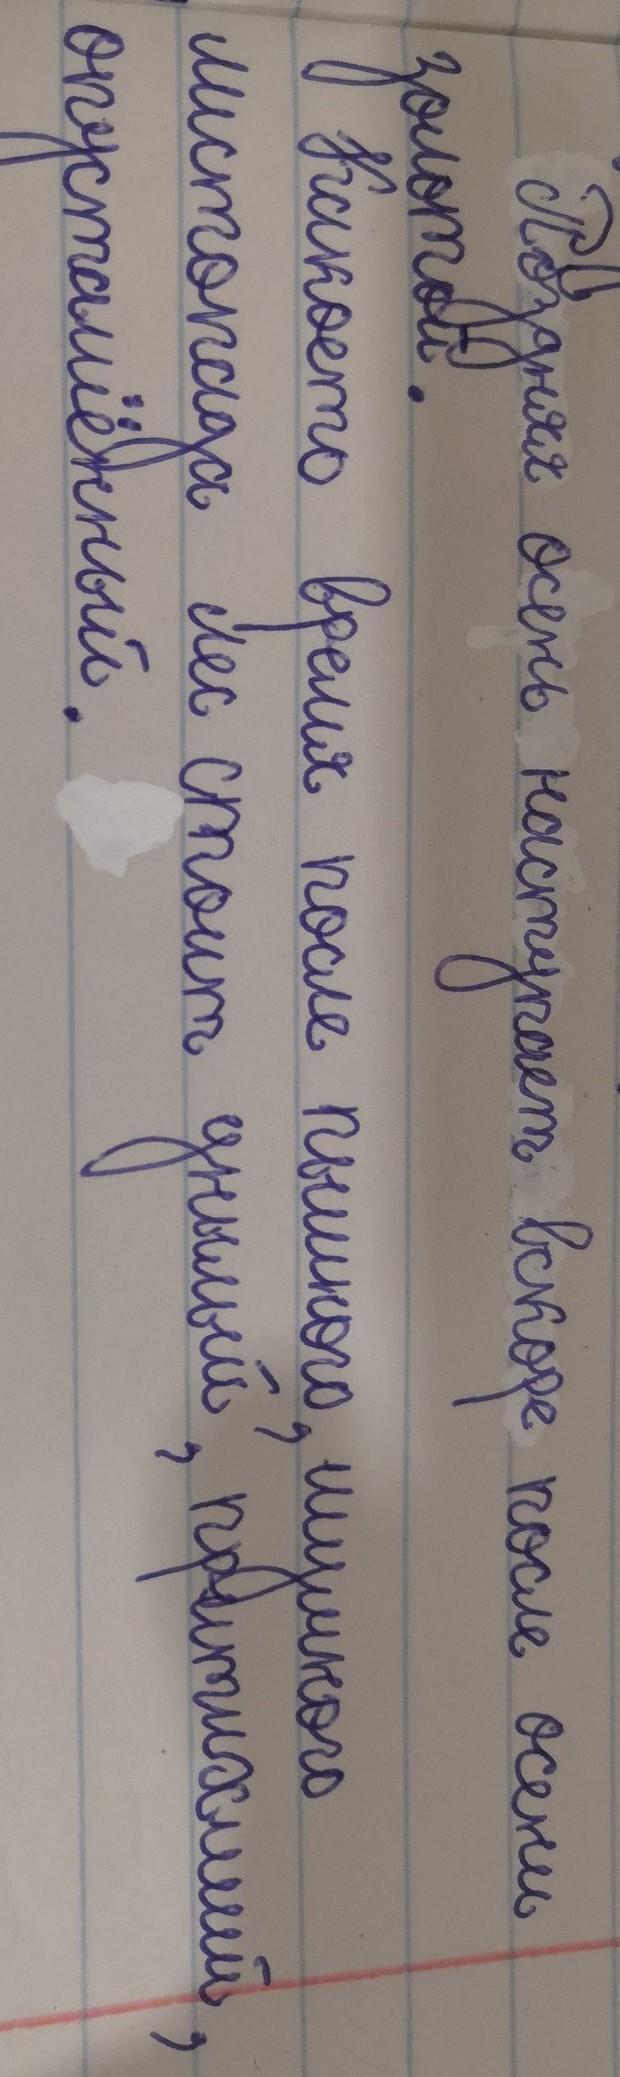 Поздняя осень наступает вскоре после осени
золотой.
Какоето время после пышного, шумного
листопада лес стоит унылый, притихший,
опусталлённый.